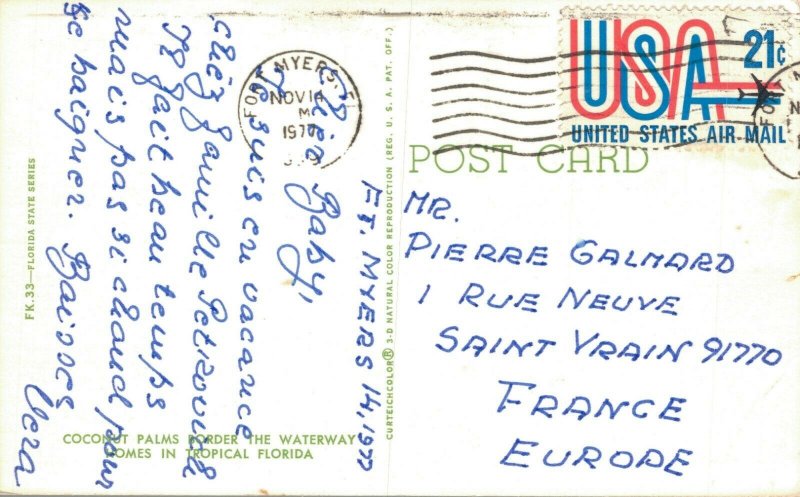 FORT MYERS, FL
NOV 14
M
1977
USA 21c
UNITED STATES AIR MAIL
POST CARD
MR.
PIERRE GALMARD
1 RUE NEUVE
SAINT VRAIN 91770
FRANCE
EUROPE
FT. MYERS 14, 1977
Baby,
suis en vacance
chez famille Petrovind
Il fait beau temps
mais pas si chaud pour
se baigner. Baisses
Vera
FK.33—FLORIDA STATE SERIES
COCONUT PALMS BORDER THE WATERWAY
HOMES IN TROPICAL FLORIDA
CURTEICHCOLOR® 3-D NATURAL COLOR REPRODUCTION (REG. U. S. A. PAT. OFF.)